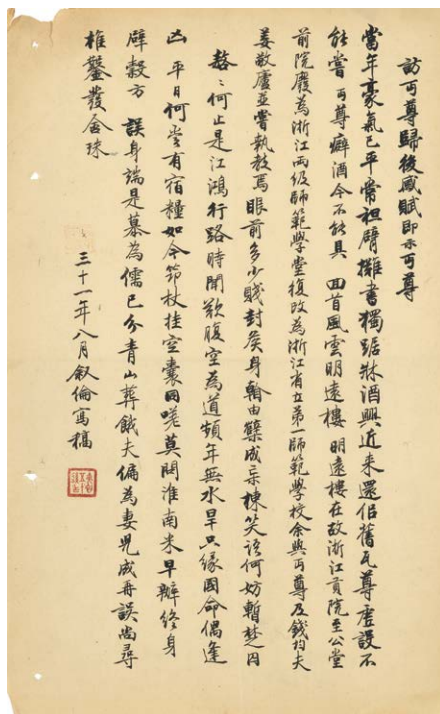 訪丏尊歸後感賦即示丏尊
當年豪氣已平常袒臂攤書獨踞牀酒興近来還倍舊瓦尊虛設不
能嘗 丏尊癖酒今不能具 回首風雲明遠樓 明遠樓在故浙江貢院至公堂
前院廢為浙江兩级師範學堂復改為浙江省立第一師範學校余與丏尊及錢均夫
姜敬廬並嘗執教焉 眼前多少賤封矦身由櫱成棟笑語何妨暫楚囚
嗸〻何止是江鴻行路時聞歎腹空為道頻年無水旱只緣國命偶逢
凶 平日何嘗有宿糧如今笻杖挂空囊同嗟莫問淮南米早辦終身
辟穀方 誤身端是慕為儒已分青山葬餓夫偏為妻兒成再誤尚尋
椎鑿發含珠
三十一年八月叙倫寫稿